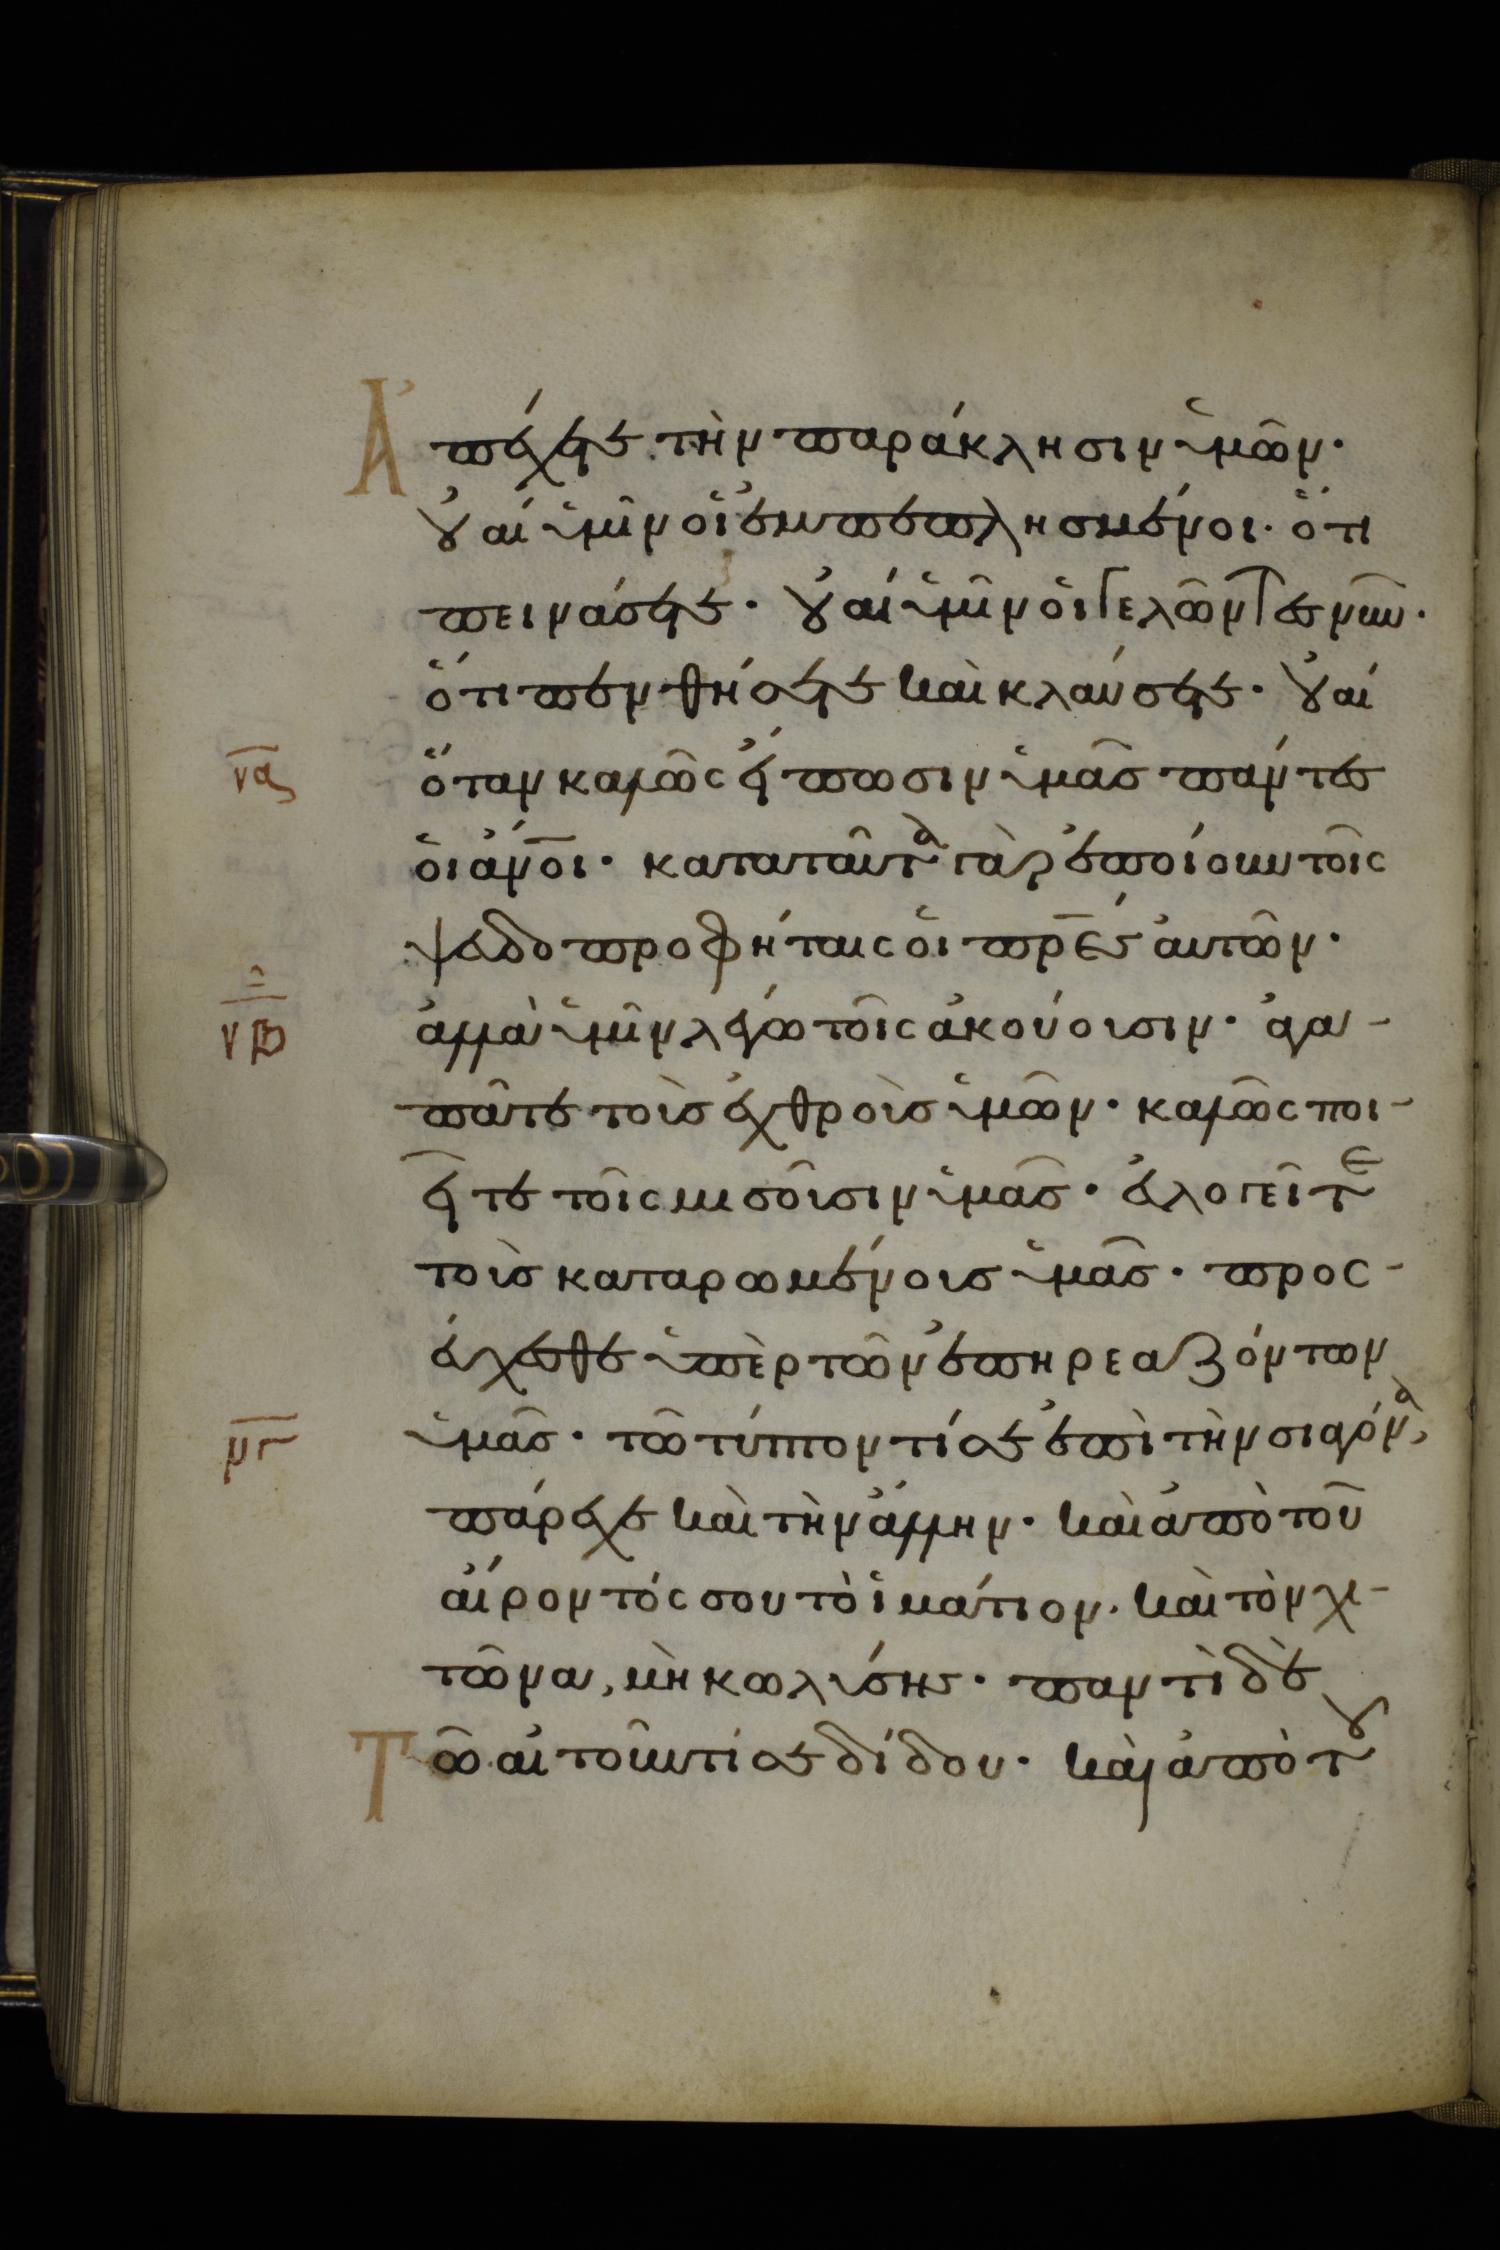 Ἀπέχετε τὴν παράκλησιν ὑμῶν·
οὐαί ὑμῖν οἱ ἐμπεπλησμένοι· ὅτι
πεινάσετε· οὐαί ὑμῖν οἱ γελῶντες νῦν·
ὅτι πενθήσετε καὶ κλαύσετε· οὐαί
να ὅταν καλῶς εἴπωσιν ὑμᾶς πάντες
οἱ ἄν̅οι· κατα ταῦτα γὰρ ἐποίουν τοῖς
ψευδοπροφήταις οἱ πρ̅ες αὐτῶν·
νβ ἀλλὰ ὑμῖν λέγω τοῖς ἀκούουσιν· ἀγα-
πᾶτε τοὺς ἐχθροὺς ὑμῶν· καλῶς ποι-
εῖτε τοῖς μισοῦσιν ὑμᾶς· εὐλογεῖτε
τοὺς καταρωμένους ὑμᾶς· προσ-
εύχεσθε ὑπὲρ τῶν ἐπηρεαζόντων
νγ ὑμᾶς· τῶ τύπτοντί σε ἐπὶ τὴν σιαγόνα,
πάρεχε καὶ τὴν ἄλλην· καὶ ἀπὸ τοῦ
αἴροντός σου τὸ ἱμάτιον· καὶ τὸν χι-
τῶνα, μὴ κωλύσης· παντὶ δὲ
Τῶ αἰτοῦντί σε δίδου· καὶ ἀπὸ του